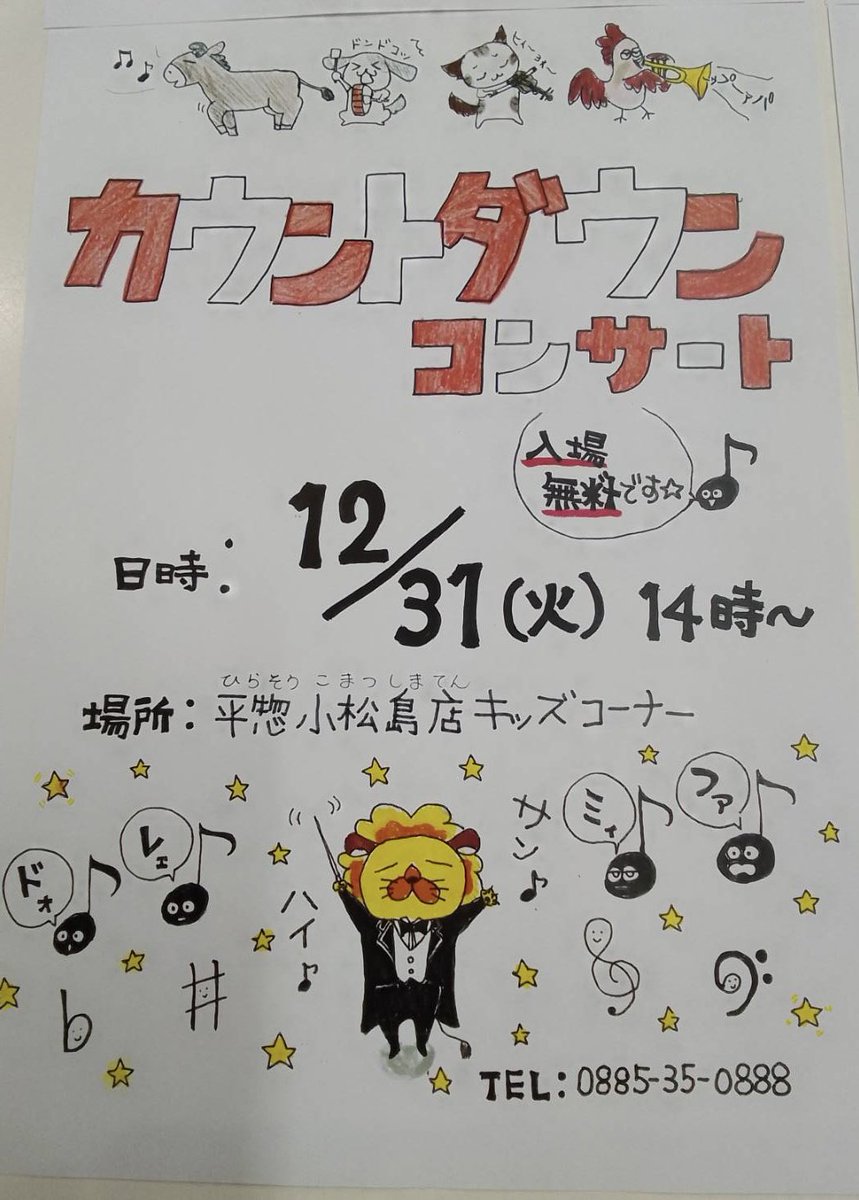 ドンドコッ
カウントダウン
コンサート
入場
無料です☆
日時: 12/31(火) 14時〜
ひらそう こまつしまてん
場所: 平惣 小松島店 キッズコーナー
ドォ
レェ
ハイ♪
サン♪
ミィ
ファ
TEL: 0885-35-0888